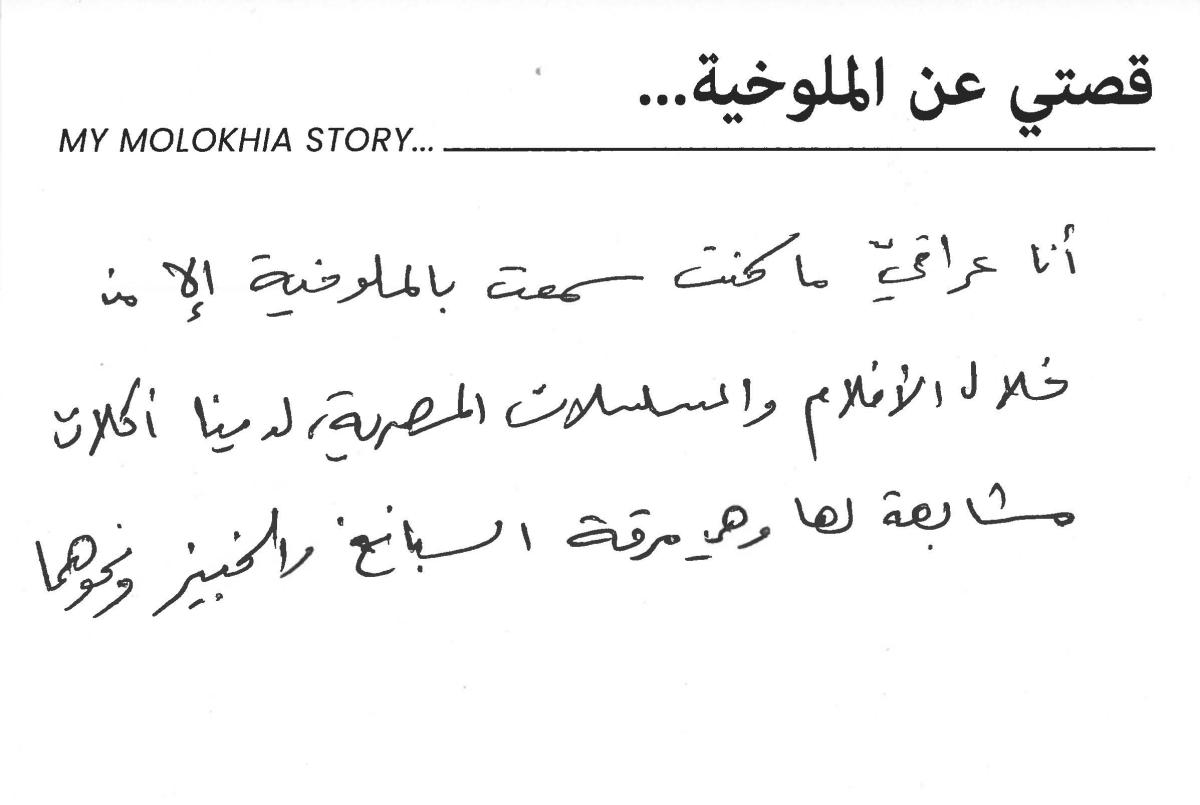 قصتي عن الملوخية...
MY MOLOKHIA STORY...
أنا عراقيّ ما كنت سمعت بالملوخية إلا من
خلال الأفلام والمسلسلات المصرية، لدينا أكلات
مشابهة لها وهي مرقة السبانغ والخبيز ونحوهما